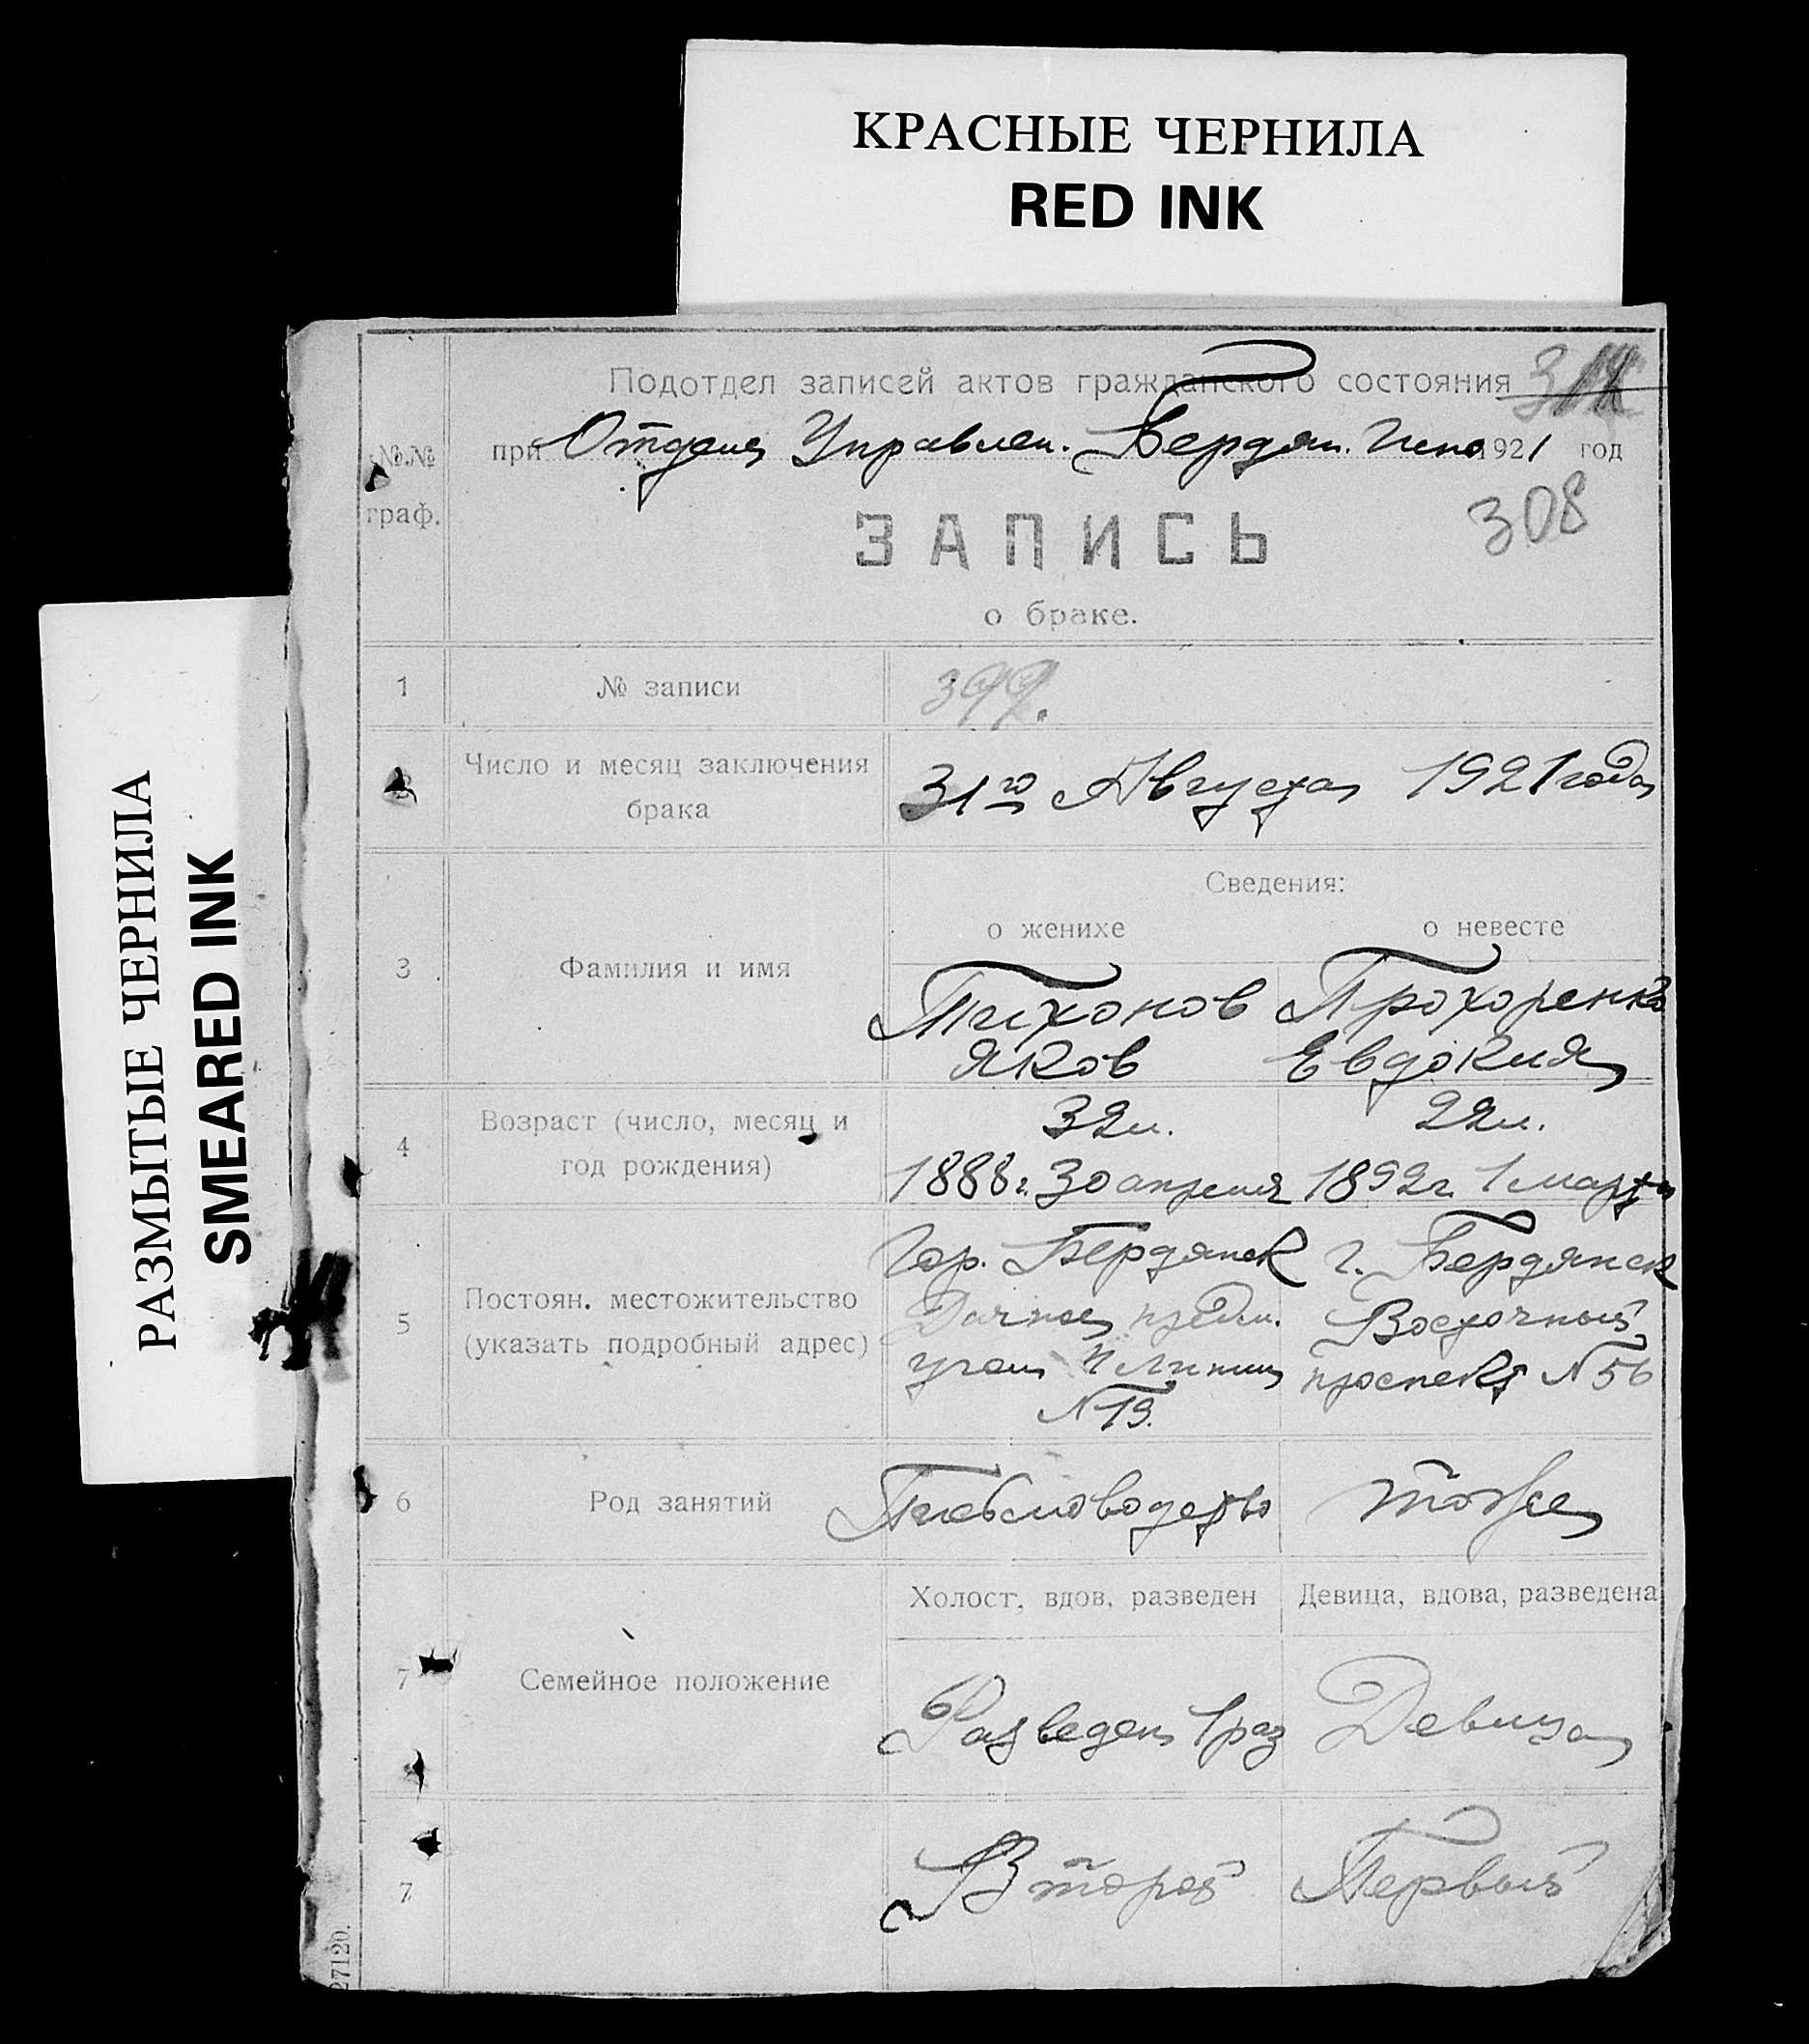 КРАСНЫЕ ЧЕРНИЛА
RED INK
РАЗМЫТЫЕ ЧЕРНИЛА
SMEARED INK
Подотдел записей актов гражданского состояния
№№ граф.
при Отделе Управлен. Бердян. Испо 1921 год
308
ЗАПИСЬ
о браке.
1 № записи 399.
Число и месяц заключения
брака
31го Августа 1921 года
Сведения:
о женихе о невесте
3 Фамилия и имя
Тихонов Прохоренко
Яков Евдокия
4 Возраст (число, месяц и
год рождения)
32 л. 22 л.
1888 г. 30 апреля 1892 г. 1 марта
5 Постоян. местожительство
(указать подробный адрес)
Гор. Бердянск г. Бердянск
Восточный
Линия проспект N 56
N 13.
6 Род занятий
тоже
7 Семейное положение
Холост, вдов, разведен Девица, вдова, разведена
Разведен 1 раз Девица
7 Второй Первый
27120.